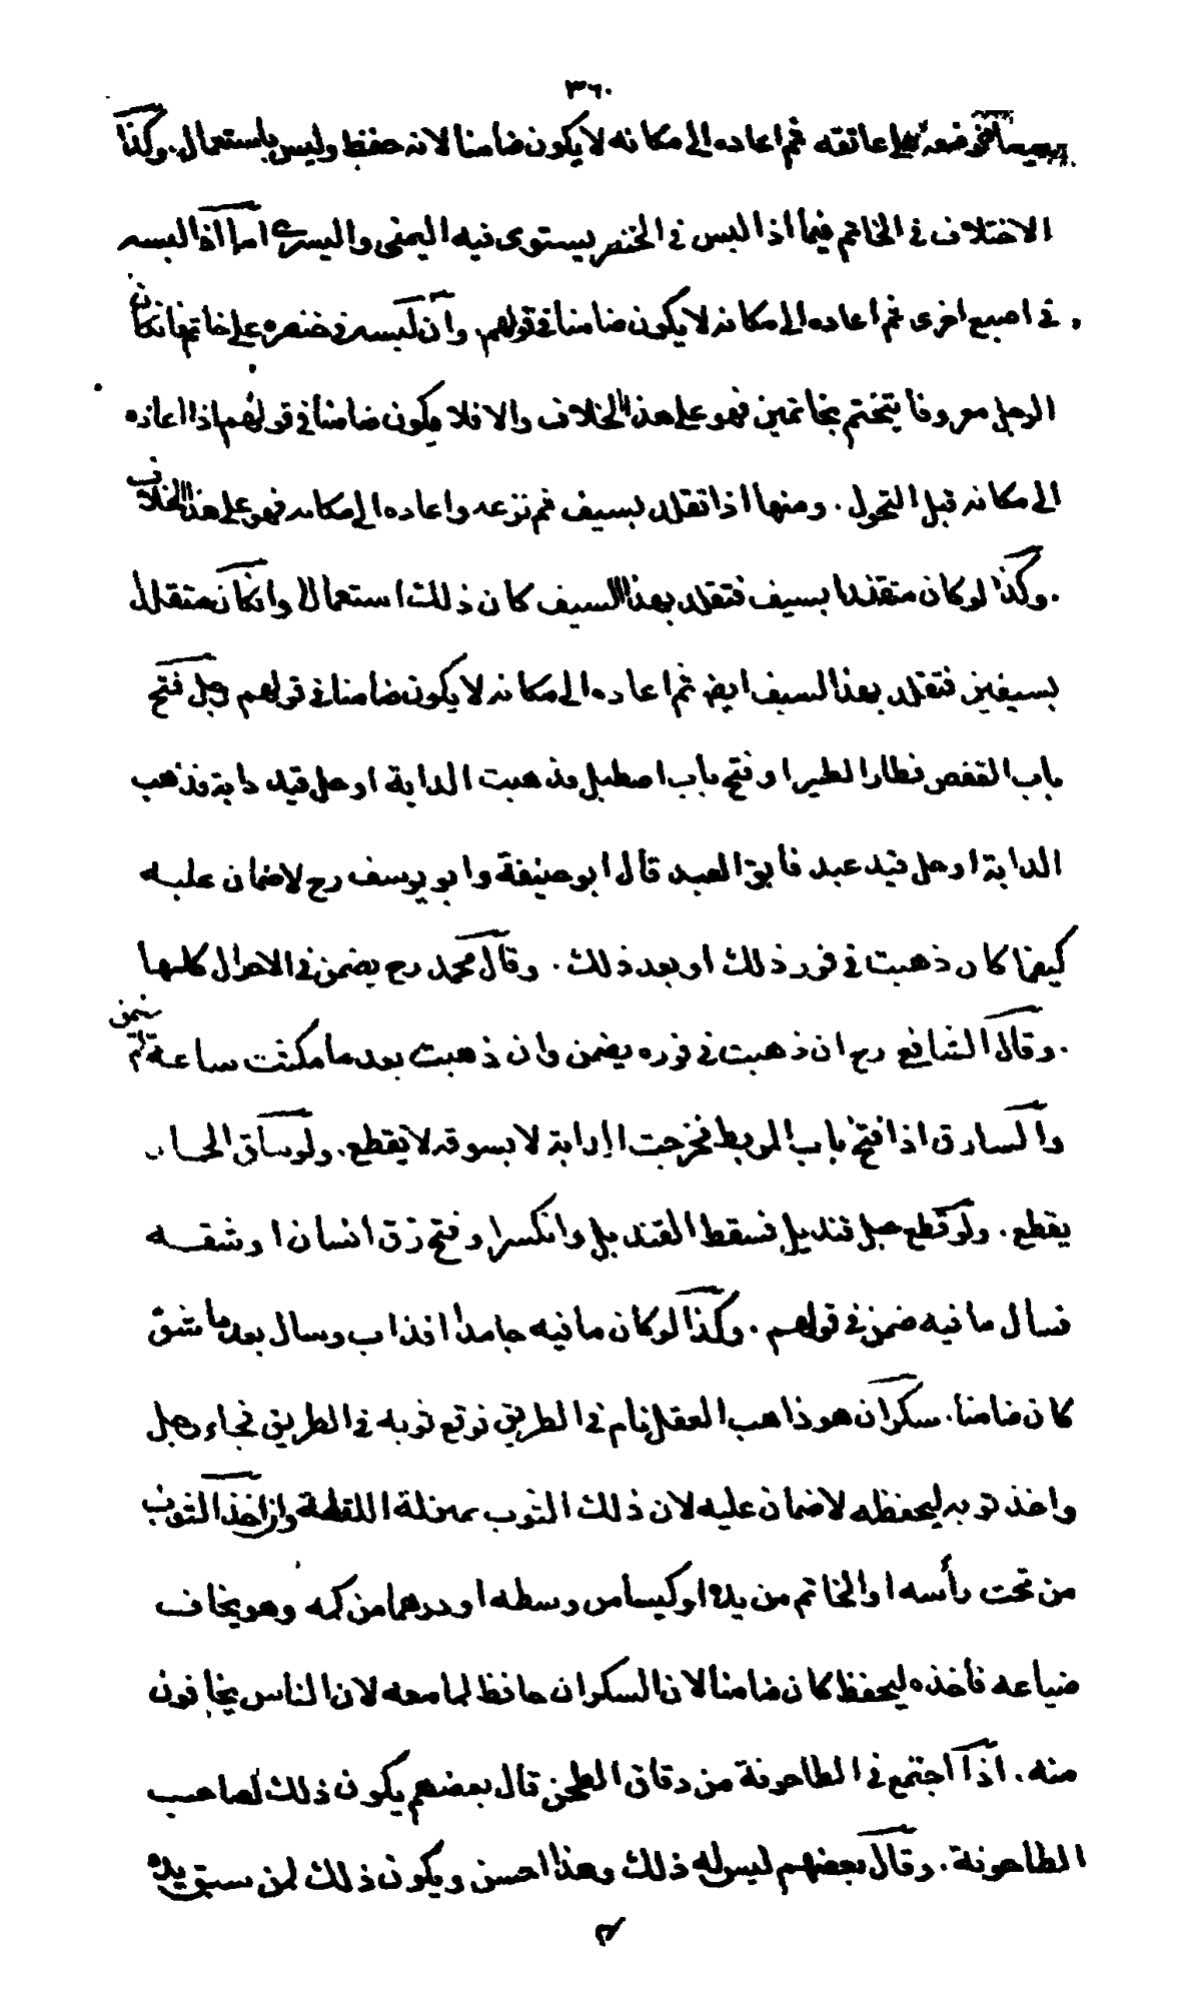 ٣٦٠
قميصا فوضعه على عاتقه ثم اعاده الى مكانه لا يكون ضامنا لانه حفظ وليس باستعمال. وكذا
الاختلاف في الخاتم فيما اذا لبس في الخنصر يستوى فيه اليمنى واليسرى اما اذا لبسه
في اصبع اخرى ثم اعاده الى مكانه لا يكون ضامنا في قولهم وان لبسه في خنصره على خاتم فان كان
الرجل معروفا يتختم بخاتمين فهو على هذا الخلاف والا فلا يكون ضامنا في قولهم اذا اعاده
الى مكانه قبل التحول. ومنها اذا تقلد بسيف ثم نزعه واعاده الى مكانه فهو على هذا الخلاف
.وكذا لو كان متقلدا بسيف فتقلد بهذا السيف كان ذلك استعمالا وان كان متقلدا
بسيفين فتقلد بهذا السيف ايض ثم اعاده الى مكانه لا يكون ضامنا في قولهم رجل فتح
باب القفص فطار الطير او فتح باب اصطبل فذهبت الدابة او حل قيد دابة فذهب
الدابة او حل قيد عبد فأبق العبد قال ابو حنيفة وابو يوسف رح لا ضمان عليه
كيفما كان ذهبت في فور ذلك او بعد ذلك. وقال محمد رح يضمن في الاحوال كلها
.وقال الشافع رح ان ذهبت في فوره يضمن وان ذهبت بعد ما مكثت ساعة لم يضمن
والسارق اذا فتح باب المربط فخرجت الدابة لا بسوقه لا يقطع. ولو ساق الحمار
يقطع. ولو قطع حبل قنديل فسقط القنديل وانكسر او فتح زق انسان او شقه
فسال ما فيه ضمن في قولهم. وكذا لو كان ما فيه جامدا فذاب وسال بعد ما شق
كان ضامنا. سكران هو ذاهب العقل نام في الطريق فوقع ثوبه في الطريق فجاء رجل
واخذ ثوبه ليحفظه لا ضمان عليه لان ذلك الثوب بمنزلة اللقطة وان اخذ الثوب
من تحت رأسه او الخاتم من يده او كيسا من وسطه او درهما من كمه وهو يخاف
ضياعه فأخذه ليحفظ كان ضامنا لان السكران حافظ لما معه لان الناس يخافون
منه. اذا اجتمع في الطاحونة من دقاق الطحن قال بعضهم يكون ذلك لصاحب
الطاحونة. وقال بعضهم ليس له ذلك وهذا احسن ويكون ذلك لمن سبق يده